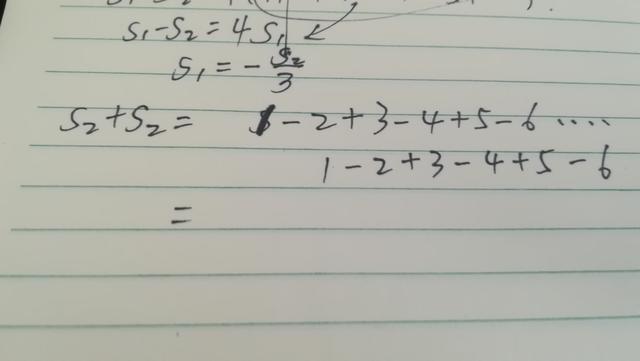 S₁-S₂=4S₁
S₁=-S₂/3
S₂+S₂= 1-2+3-4+5-6....
1-2+3-4+5-6
=